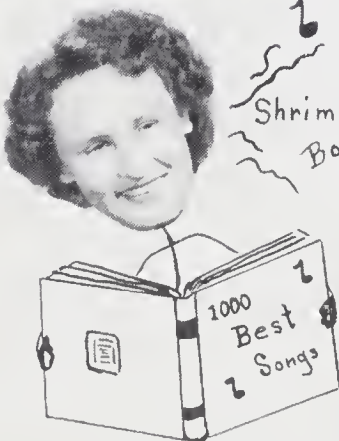 Shrim
Bo
1000
Best
Songs